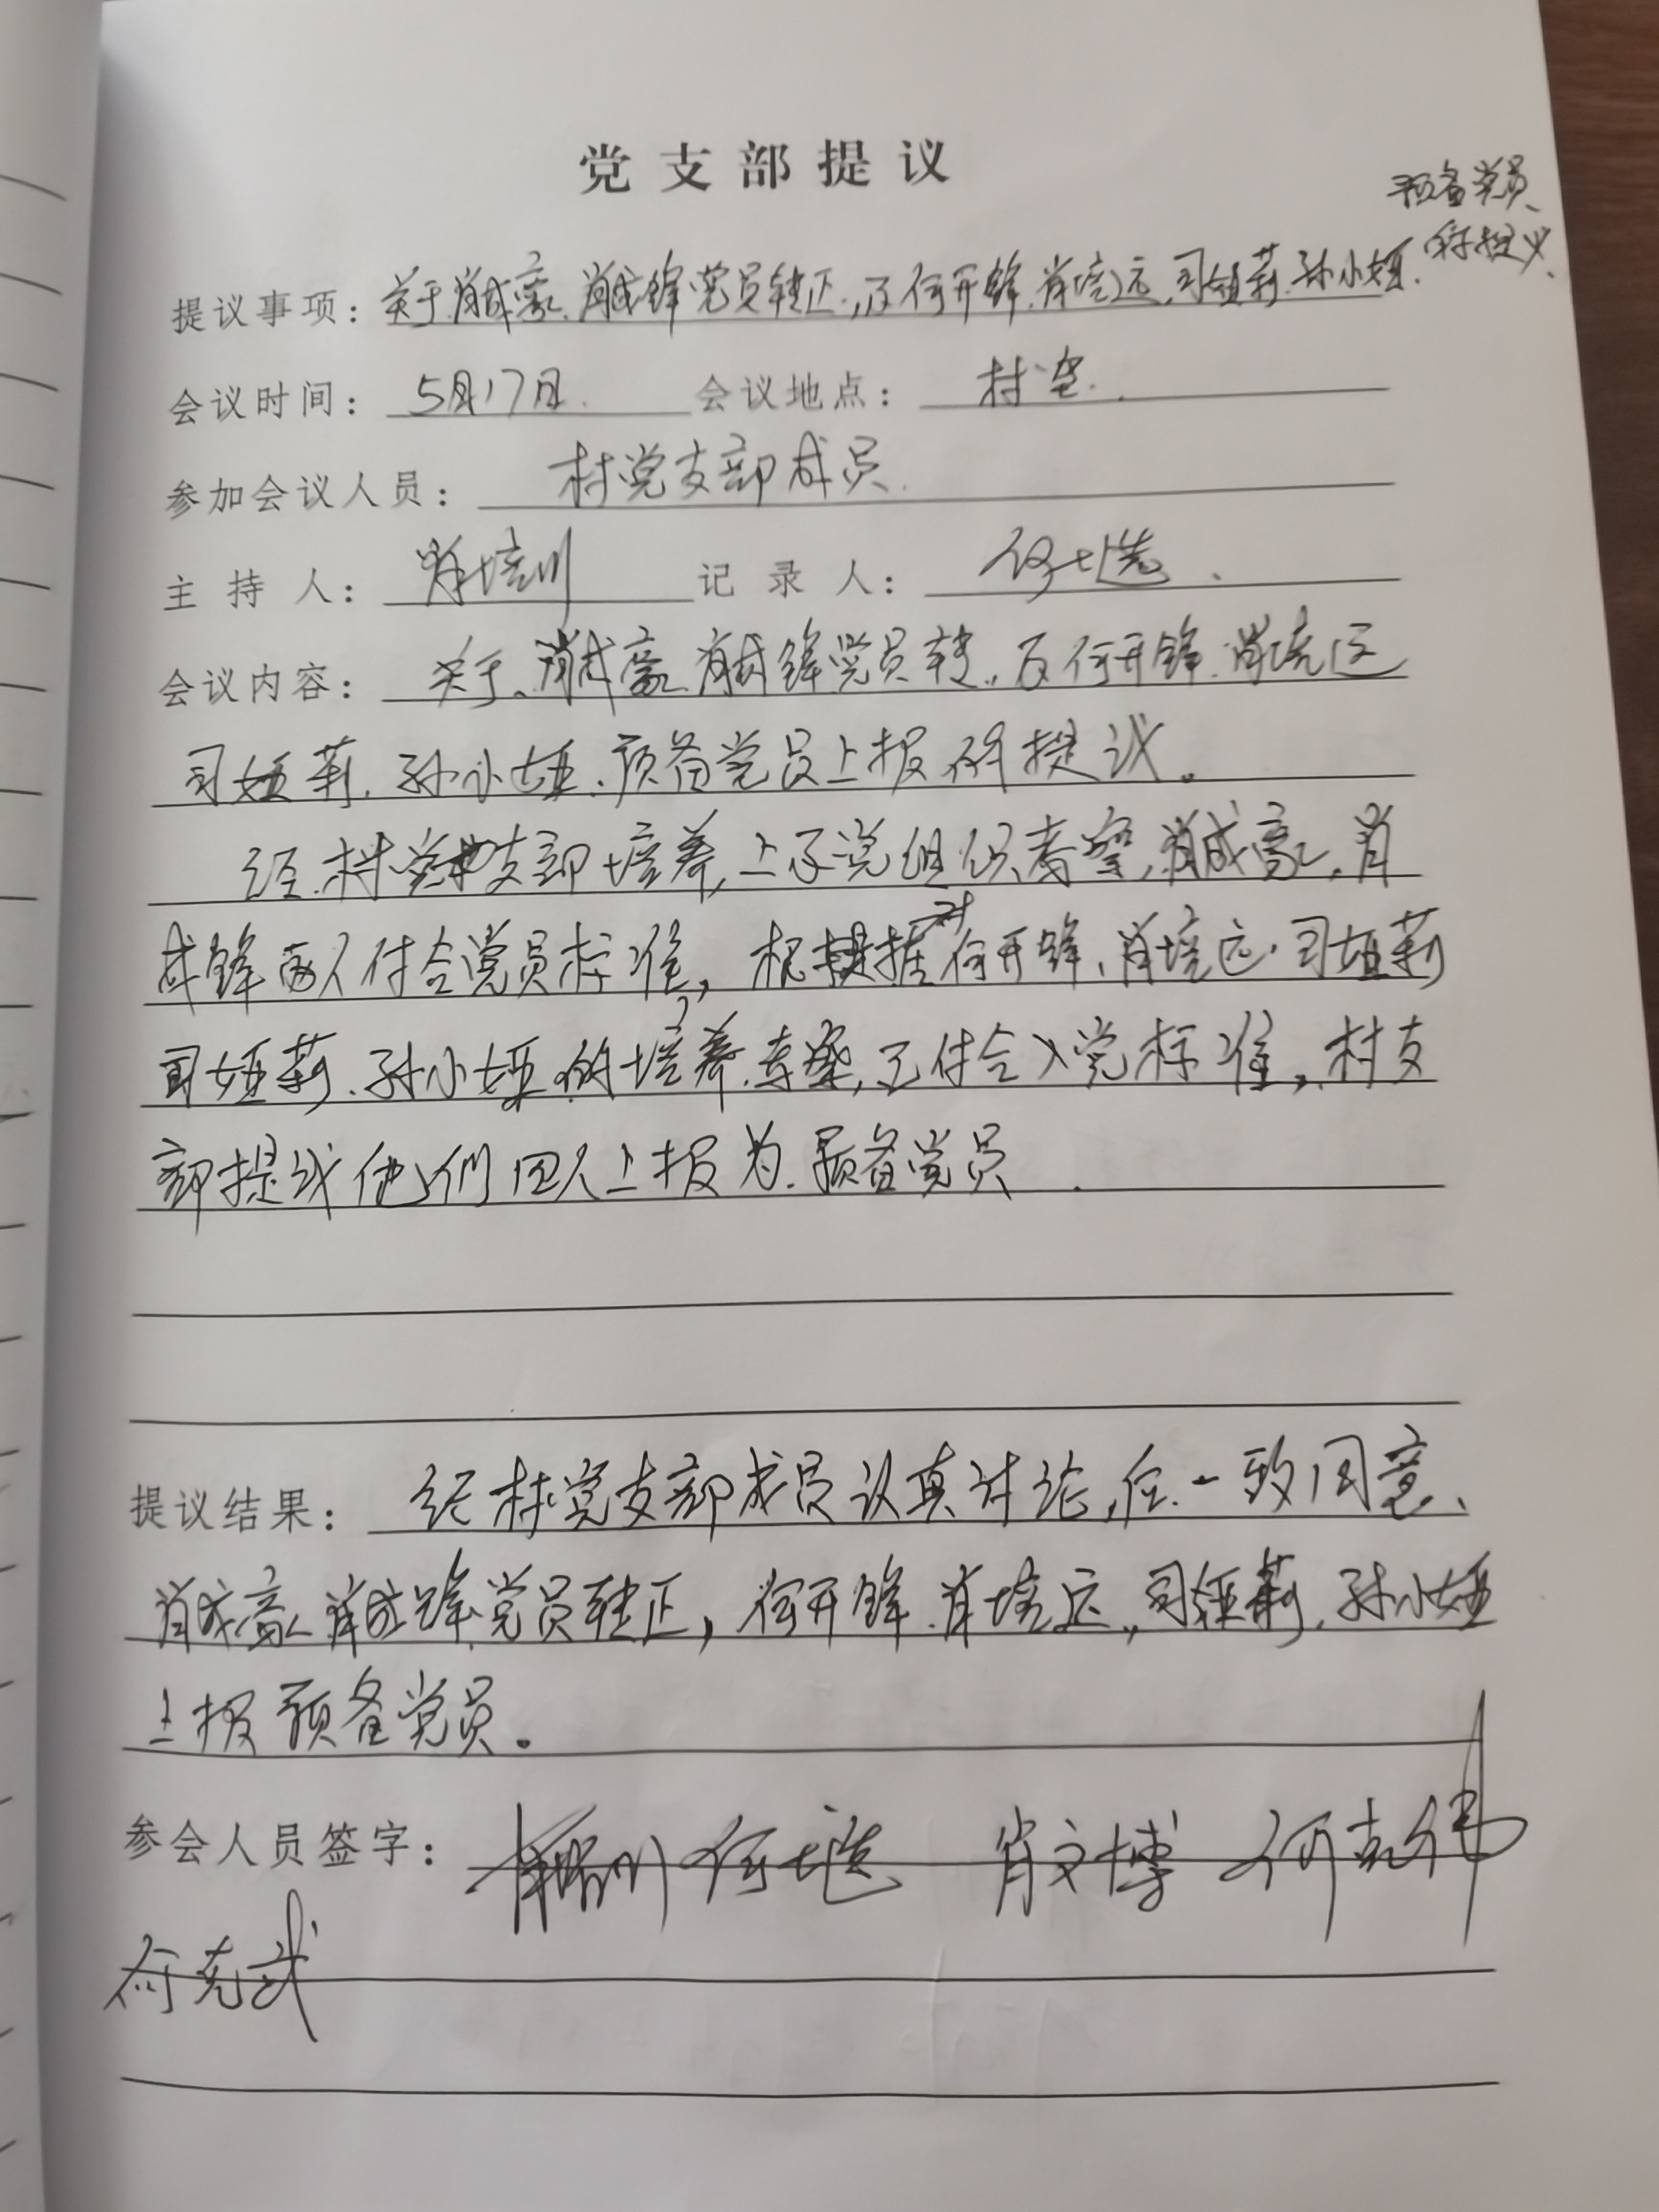 党支部提议
预备党员、
的提议、
提议事项：关于.肖成豪.肖成锋党员转正.,及何开锋.肖培远.司娅莉.孙小娅.
会议时间：5月17日. 会议地点：村室.
参加会议人员：村党支部成员.
主持人：肖培训 记录人：何士选.
会议内容：关于.肖成豪.肖成锋党员转.,及何开锋.肖培远
司娅莉.孙小娅.预备党员上报的提议。
经.村党支部培养,上级党组织考察,肖成豪.肖
成锋两人付合党员标准，根据对何开锋、肖培远.司娅莉
司娅莉.孙小娅.的培养.考察,已付合入党标准,村支
部提议他们四人上报为.预备党员.
提议结果：经村党支部成员认真讨论,.一致同意、
肖成豪.肖成锋.党员转正，何开锋.肖培远.,司娅莉.孙小娅
上报预备党员。
参会人员签字：肖培训 何士选 肖文博 何克伟
何克武